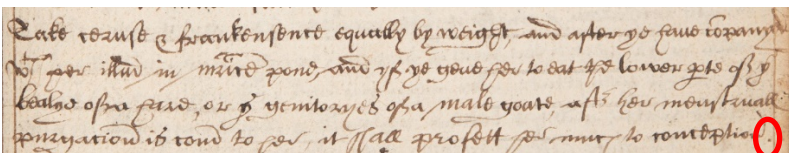 Take ceruse & frankensence equally by weight, and after ye have co̅pany
wt her illud in mr̅ice pone, and yf ye geve her to eat the lower p̱te off yͤ
bealye off a hare, or yͤ genitoryes off a male goate, aft̅ her menstruall
purgacion is cond to her, it shall profett her muc̅h to conception.